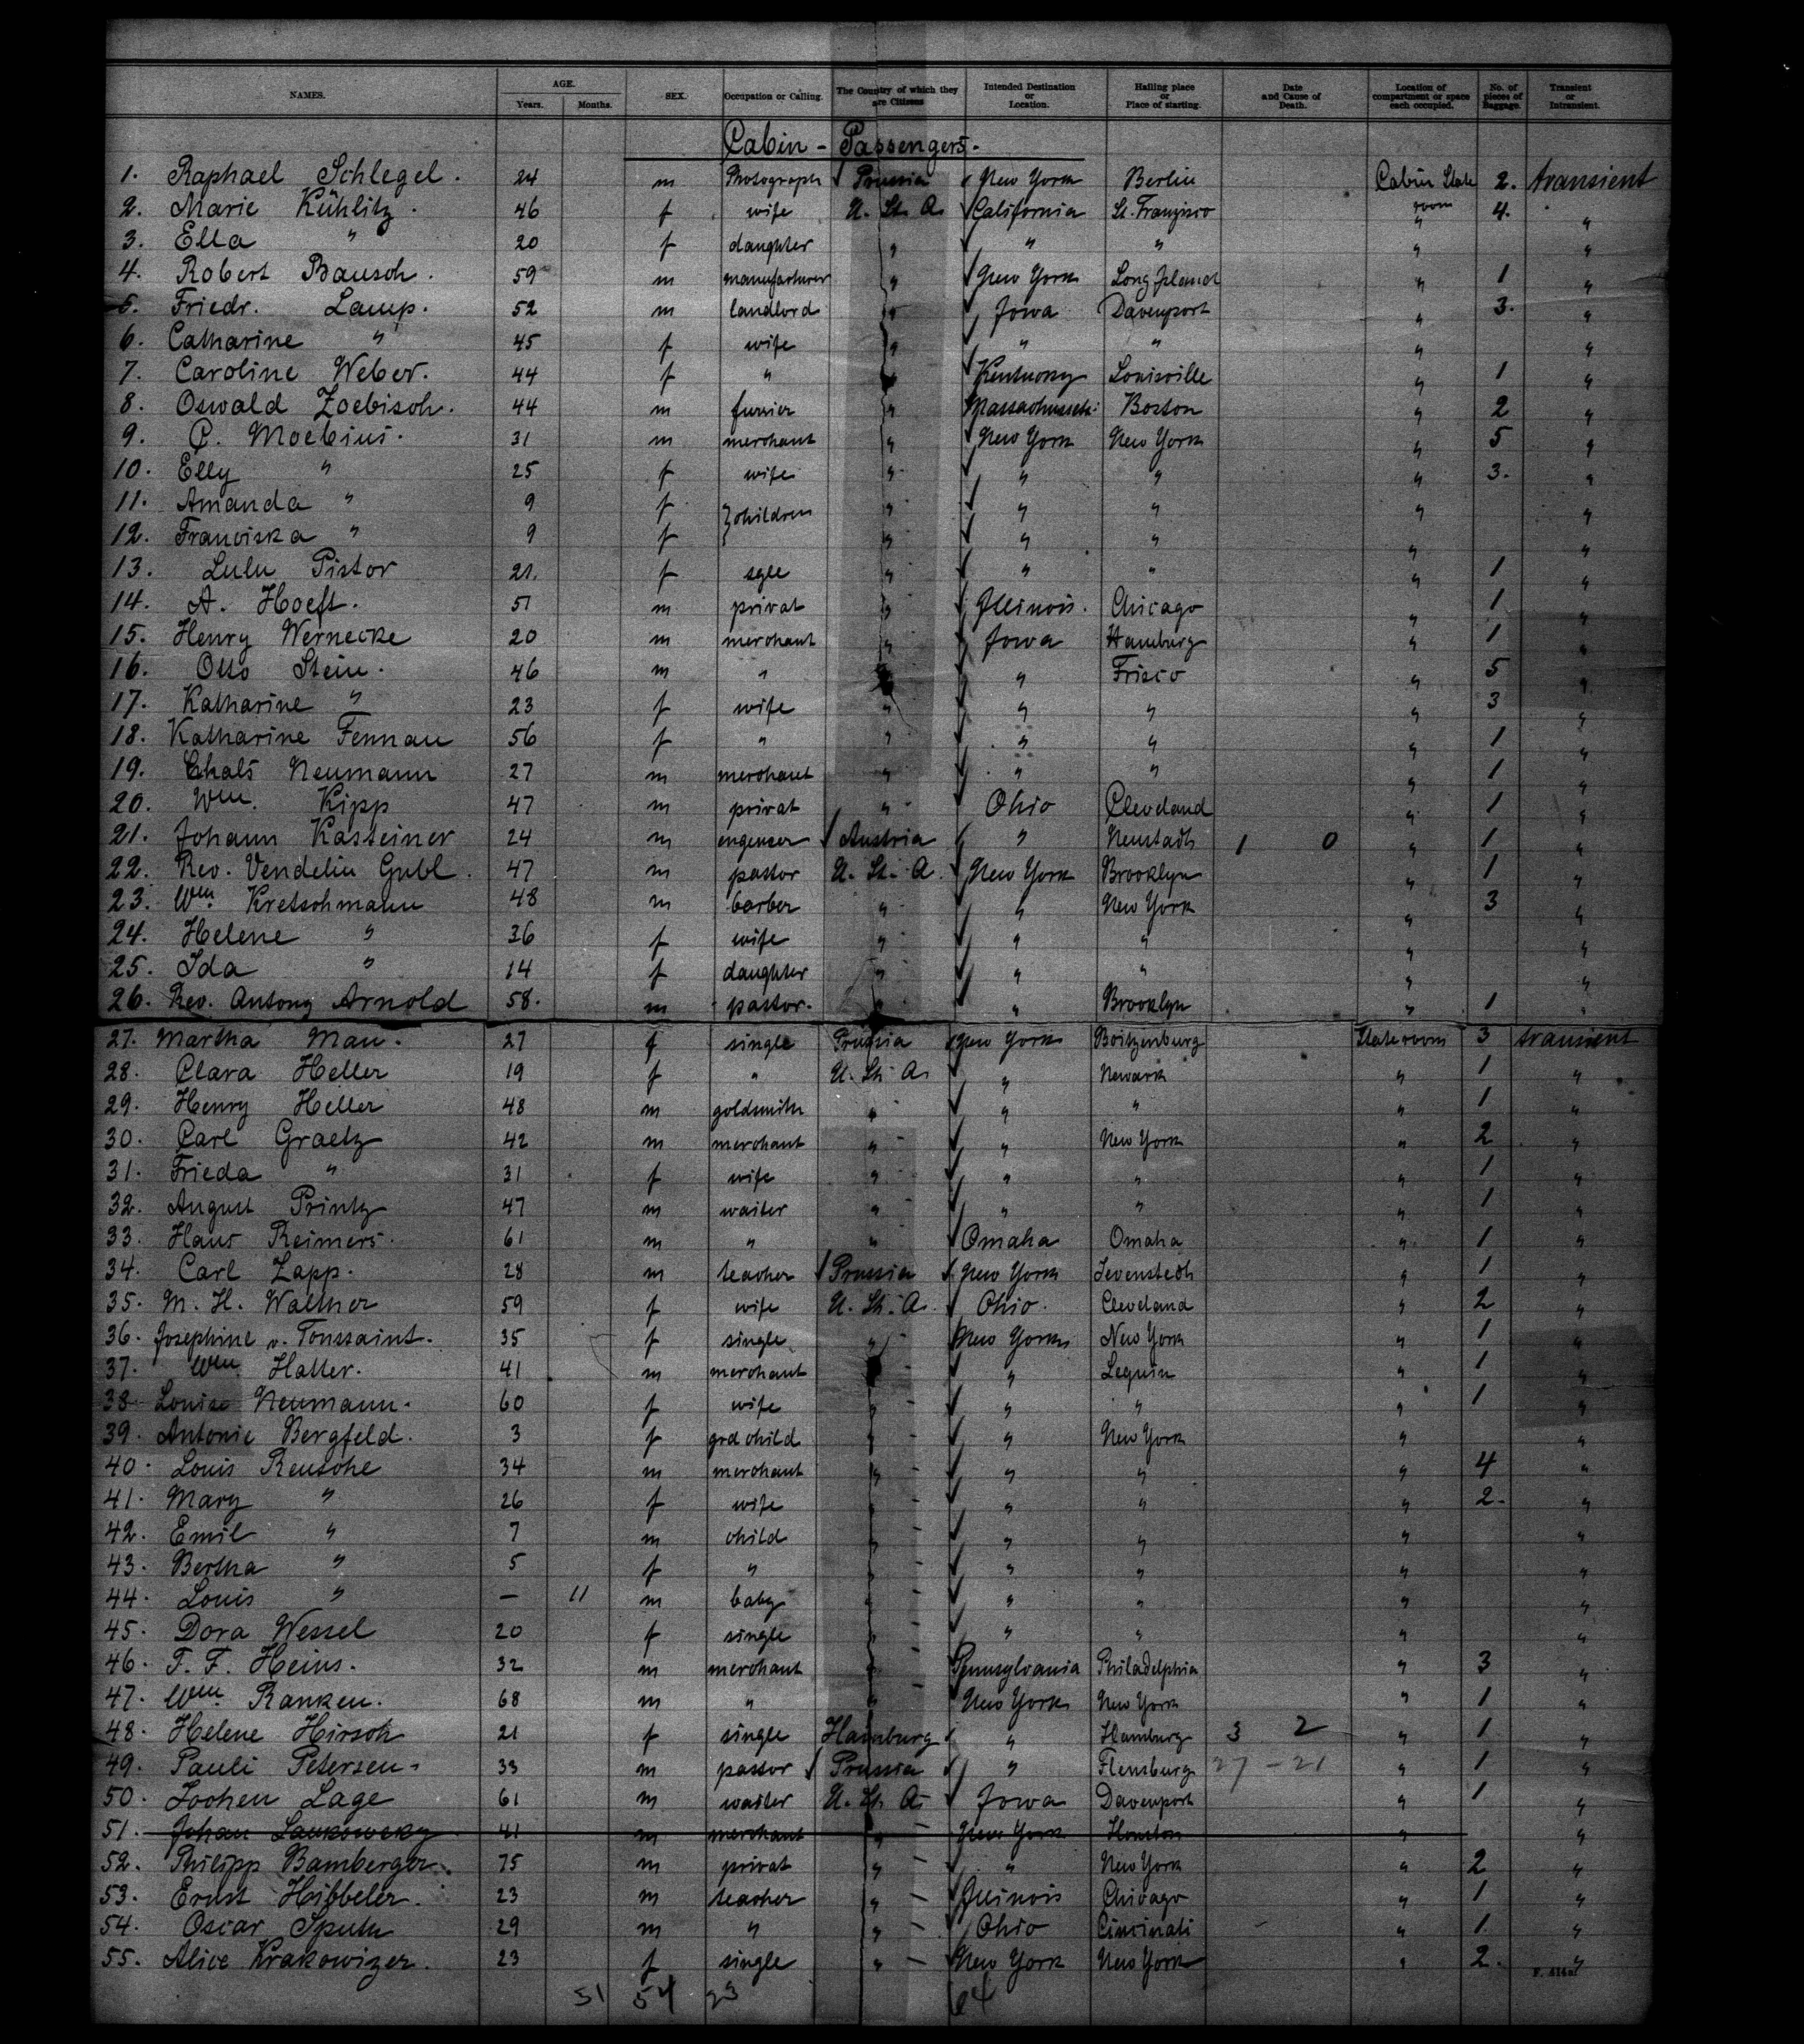 NAMES. AGE. Years. Months. SEX. Occupation or Calling. The Country of which they are Citizens Intended Destination or Location. Hailing place or Place of starting. Date and Cause of Death. Location of compartment or space each occupied. No. of pieces of Baggage. Transient or Intransient.
Cabin - Passengers.
1. Raphael Schlegel. 24 m Photograph Prussia New York Berlin Cabin State room 2. transient
2. Marie Kühlitz. 46 f wife U. St. A. California St. Franzisco " 4. "
3. Ella " 20 f daughter " " " " "
4. Robert Bausch. 59 m manufacturer " New York Long Island " 1 "
5. Friedr. Lamp. 52 m landlord " Iowa Davenport " 3. "
6. Catharine " 45 f wife " " " " "
7. Caroline Weber. 44 f " " Kentucky Louisville " 1 "
8. Oswald Zoebisch. 44 m furrier " Massachussets Boston " 2 "
9. C. Moebius. 31 m merchant " New York New York " 5 "
10. Elly " 25 f wife " " " " 3. "
11. Amanda " 9 f } children " " " " "
12. Franciska " 9 f " " " " "
13. Lulu Pistor 21. f sgle " " " " 1 "
14. A. Hoeft. 51 m privat " Illinois. Chicago " 1 "
15. Henry Wernecke 20 m merchant " Iowa Hamburg " 1 "
16. Otto Stein. 46 m " " " Frisco " 5 "
17. Katharine " 23 f wife " " " " 3 "
18. Katharine Fennau 56 f " " " " " 1 "
19. Chals Neumann 27 m merchant " " " " 1 "
20. Wm. Kipp 47 m privat " Ohio Cleveland " 1 "
21. Johann Kasteiner 24 m engeneer Austria " Neustadt 1 0 " 1 "
22. Rev. Vendelin Gubl. 47 m pastor U. St. A. New York Brooklyn " 1 "
23. Wm Kretschmann 48 m barber " " New York " 3 "
24. Helene " 36 f wife " " " " "
25. Ida " 14 f daughter " " " " "
26. Rev. Antony Arnold 58. m pastor. " " Brooklyn " 1 "
27. Martha Mau. 27 f single Prussia New York Boitzenburg State room 3 transient
28. Clara Heller 19 f " U. St. A. " Newark " 1 "
29. Henry Heller 48 m goldsmith " " " " 1 "
30. Carl Graetz 42 m merchant " " New York " 2 "
31. Frieda " 31 f wife " " " " 1 "
32. August Printz 47 m waiter " " " " 1 "
33. Hans Reimers. 61 m " " Omaha Omaha " 1 "
34. Carl Zapp. 28 m teacher Prussia New York Jevenstedt " 1 "
35. M. H. Walther 59 f wife U. St. A. Ohio. Cleveland " 2 "
36. Josephine v. Toussaint. 35 f single " New York New York " 1 "
37. Wm. Haller. 41 m merchant " " " 1 "
38. Louise Neumann. 60 f wife " " " " 1 "
39. Antonie Bergfeld. 3 f grd child " " New York " "
40. Louis Reusche 34 m merchant " " " " 4 "
41. Mary " 26 f wife " " " " 2. "
42. Emil " 7 m child " " " " "
43. Bertha " 5 f " " " " " "
44. Louis " — 11 m baby " " " " "
45. Dora Wessel 20 f single " " " " "
46. T. F. Heins. 32 m merchant " Pennsylvania Philadelphia " 3 "
47. Wm. Ranken. 68 m " " New York New York " 1 "
48. Helene Hirsch 21 f single Hamburg " Hamburg 3 2 " 1 "
49. Pauli Petersen. 33 m pastor Prussia " Flensburg 27 - 21 " 1 "
50. Jochen Lage 61 m waiter U. St. A. Iowa Davenport " 1 "
51. Johan Laukowsky 41 m merchant " New York Houston " "
52. Philipp Bamberger. 75 m privat " " New York " 2 "
53. Ernst Hibbeler. 23 m teacher " Illinois Chicago " 1 "
54. Oscar Sputh 29 m " " Ohio Cincinati " 1. "
55. Alice Krakowizer. 23 f single " New York New York " 2. "
51 54 23 64